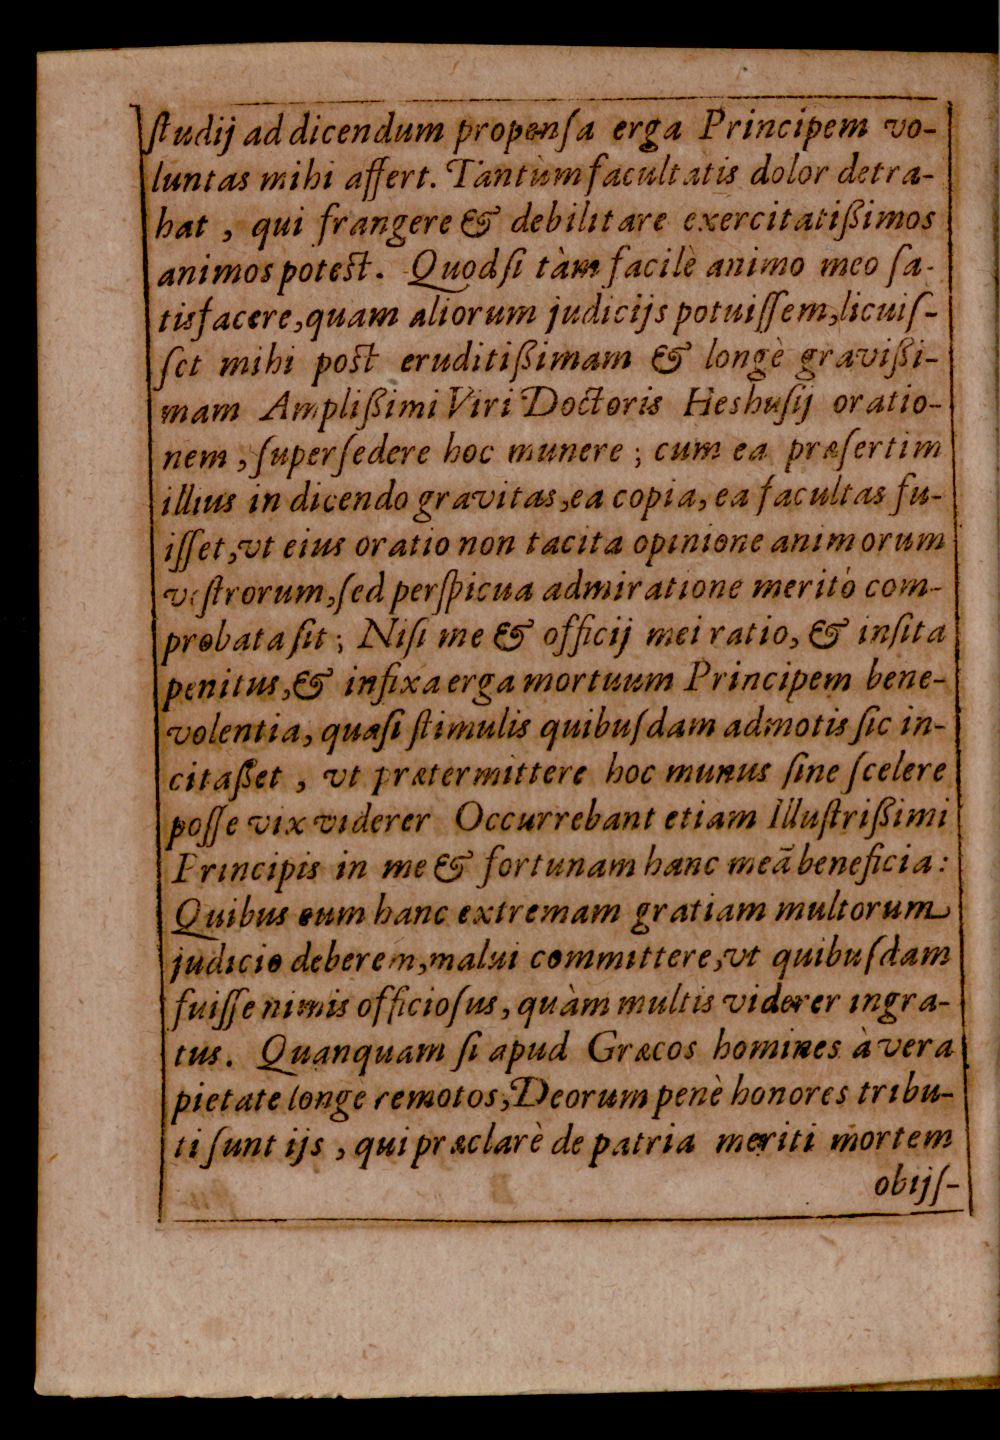 ſtudij ad dicendum propenſa erga Principem vo-
luntas mihi affert. Tantùm facultatis dolor detra-
hat, qui frangere & debilitare exercitatißimos
animos potest. Quod ſi tàm facilè animo meo ſa-
tisfacere, quam aliorum judicijs potuiſſem, licuiſ-
ſet mihi post eruditißimam & longè gravißi-
mam Amplißimi Viri Doctoris Heshuſij oratio-
nem, ſuperſedere hoc munere; cum ea præſertim
illius in dicendo gravitas, ea copia, ea facultas fu-
iſſet, vt eius oratio non tacita opinione animorum
veſtrorum, ſed perſpicua admiratione meritò com-
probata ſit; Niſi me & officij mei ratio, & inſita
penitus, & infixa erga mortuum Principem bene-
volentia, quaſi ſtimulis quibuſdam admotis ſic in-
citaßet, vt prætermittere hoc munus ſine ſcelere
poſſe vix viderer Occurrebant etiam Illuſtrißimi
Principis in me & fortunam hanc meã beneficia:
Quibus cum hanc extremam gratiam multorum
judicio deberem, malui committere, vt quibuſdam
fuiſſe nimis officioſus, quàm multis viderer ingra-
tus. Quanquam ſi apud Græcos homines à vera
pietate longe remotos, Deorum penè honores tribu-
ti ſunt ijs, qui præclarè de patria meriti mortem
obijſ-